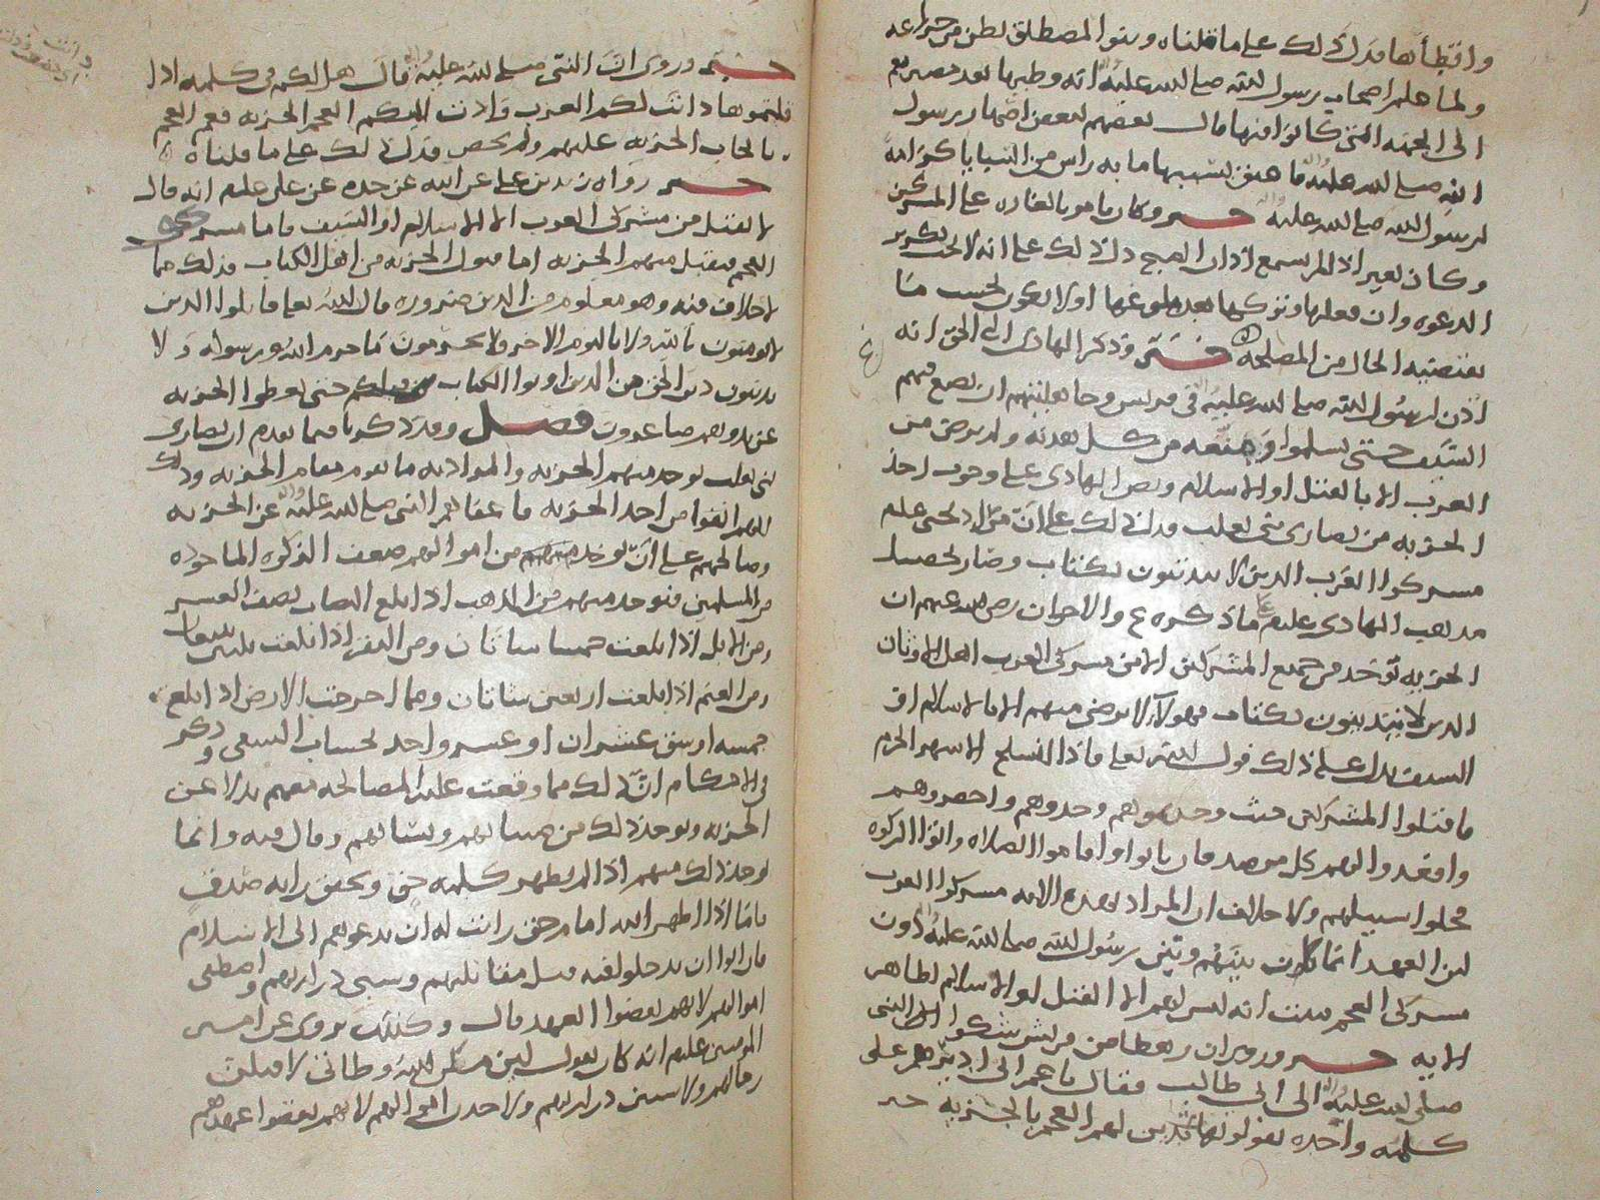 واقتطأها فدل ذلك على ما قلناه وبنوا المصطلق بطن من خزاعه
ولما هلم اصحاب رسول الله صلى الله عليه انه وطيها بعد مصيرهم
الى الخمه التي كانوا فيها قال بعضهم لبعض اصهار رسول
الله صلى الله عليه فاعتق بسببها مايه راس من السبايا كرامة
لرسول الله صلى الله عليه خبر وكان يامر بالغاره على المشركين
وكان يغير اذا لم يسمع اذان الصبح دل ذلك على انه لا يجب تكرير
الدعوه وان فعلها وتركها بعد بلوغها اولا يكون بحسب ما
يقتضيه الحال من المصلحه خبر وذكر الهادي الى الحق انه
اذن لرسول الله صلى الله عليه في قريش وجاهليتهم ان يضع فيهم
السيف حتى يسلموا ومنعه من كل هدنه ولم يرض من
العرب الا بالقتل او الاسلام ونص الهادي على وجوب اخذ
الجزيه من نصارى بني تغلب فدل ذلك على ان مراد يحيى عليلم
مشركوا العرب الذين لا يتدينون بكتاب وصار تحصيل
مذهب الهادي عليلم على ما ذكره ع والاخوان رضي الله عنهم ان
الجزيه توخذ من جميع المشركين الا من مشركي العرب اهل الاوثان
الذين لا يتدينون بكتاب فهولاء لا يرضى منهم الا بالاسلام او
السيف يدل على ذلك قول الله تعالى فاذا انسلخ الاشهر الحرم
فاقتلوا المشركين حيث وجدتموهم وخذوهم واحصروهم
واقعدوا لهم كل مرصد فان تابوا واقاموا الصلاه واتوا الزكوه
فخلوا سبيلهم ولا خلاف ان المراد بهذه الايه مشركوا العرب
لان العهد انما كان بينهم وبين رسول الله صلى الله عليه دون
مشركي العجم بينت انه ليس لهم الا القتل او الاسلام لظاهر
الايه خبر وروي ان رهطا من قريش شكوا الى النبي
صلى الله عليه الى ابي طالب فقال يا عم اني اريدهم على
كلمه واحده يقولونها تدين لهم العجم بالجزيه خبر
خبر وروي ان النبي صلى الله عليه قال هل لكم في كلمه اذا
قلتموها دانت لكم العرب وادت اليكم العجم الجزيه فعم العجم
بايجاب الجزيه عليهم ولم يخص فدل ذلك على ما قلناه
خبر رواه زيد بن علي عن ابيه عن جده عن علي عليلم انه قال
لا يقبل من مشركي العرب الا الاسلام او السيف واما مشركي
العجم فيقبل منهم الجزيه اما قبول الجزيه من اهل الكتاب فذلك مما
لا خلاف فيه وهو معلوم من الدين ضروره قال الله تعالى قاتلوا الذين
لا يومنون بالله ولا باليوم الاخر ولا يحرمون ما حرم الله ورسوله ولا
يدينون دين الحق من الذين اوتوا الكتاب حتى يعطوا الجزيه
عن يد وهم صاغرون فصل وقد ذكرنا فيما تقدم ان نصارى
بني تغلب يوخذ منهم الجزيه والمراد به ما يقوم مقام الجزيه وذلك
انهم انفوا من اخذ الجزيه فاعفاهم النبي صلى الله عليه عن الجزيه
وصالحهم على ان يوخذ من اموالهم ضعف الزكوه الماخوذه
من المسلمين فيوخذ منهم من الذهب اذا بلغ النصاب نصف العشر
ومن الابل اذا بلغت خمسا شاتان ومن البقر اذا بلغت ثلثين تبيعان
ومن الغنم اذا بلغت اربعين شاتان ومما اخرجت الارض اذا بلغ
خمسه اوسق عشران او عشر واحد بحساب السقي وذكر
في الاحكام ان ذلك مما وقعت عليه المصالحه معهم بدلا عن
الجزيه ويوخذ ذلك من صبيانهم ونسائهم وقال فيه وانما
يوخذ ذلك منهم اذا لم يظهر كلمه حق وتخفق رايه صدق
فاما اذا اظهر الله امام حق رايت له ان يدعوهم الى الاسلام
فان ابوا ان يدخلوا فيه قتل مقاتليهم وسبى ذراريهم واصطفى
اموالهم لانهم نقضوا العهد قال وكذلك يروى عن امير
المومنين عليلم انه كان يقول لين مكن الله وطاتي لاقتلن
رجالهم ولاسبين ذراريهم ولاخذن اموالهم لانهم نقضوا عهدهم